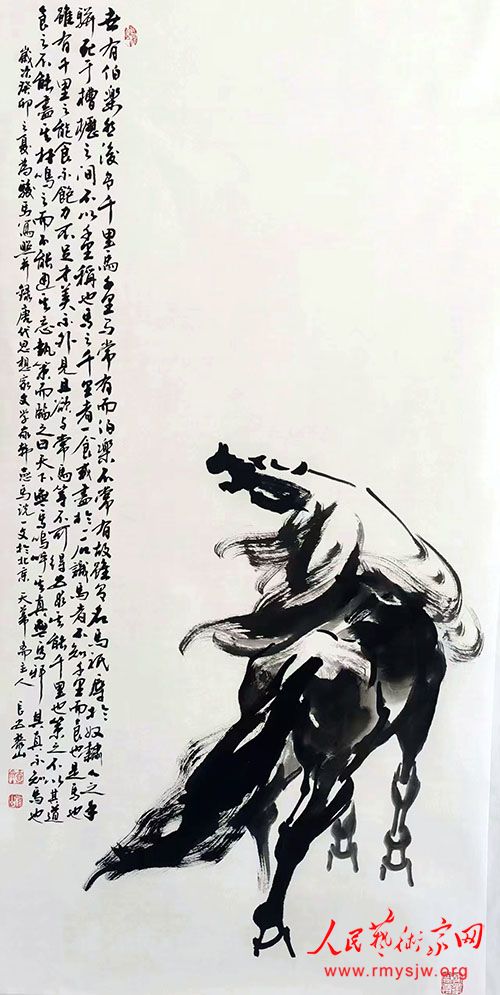 世有伯樂然後有千里馬千里馬常有而伯樂不常有故雖有名馬祇辱於奴隸人之手
駢死于槽櫪之間不以千里稱也馬之千里者一食或盡一石識馬者不知千里而食也是馬也
雖有千里之能食不飽力不足才美不外見且欲与常馬等不可得安求其能千里也策之不以其道
食之不能盡其材鳴之而不能通其意執策而臨之曰天下無馬嗚呼其真無馬邪其真不知馬也
歲次癸卯之夏為駿馬寫照并錄唐代思想家文學家韩愈馬说一文於北京天華齋主人
人民藝術家网
www.rmysjw.org